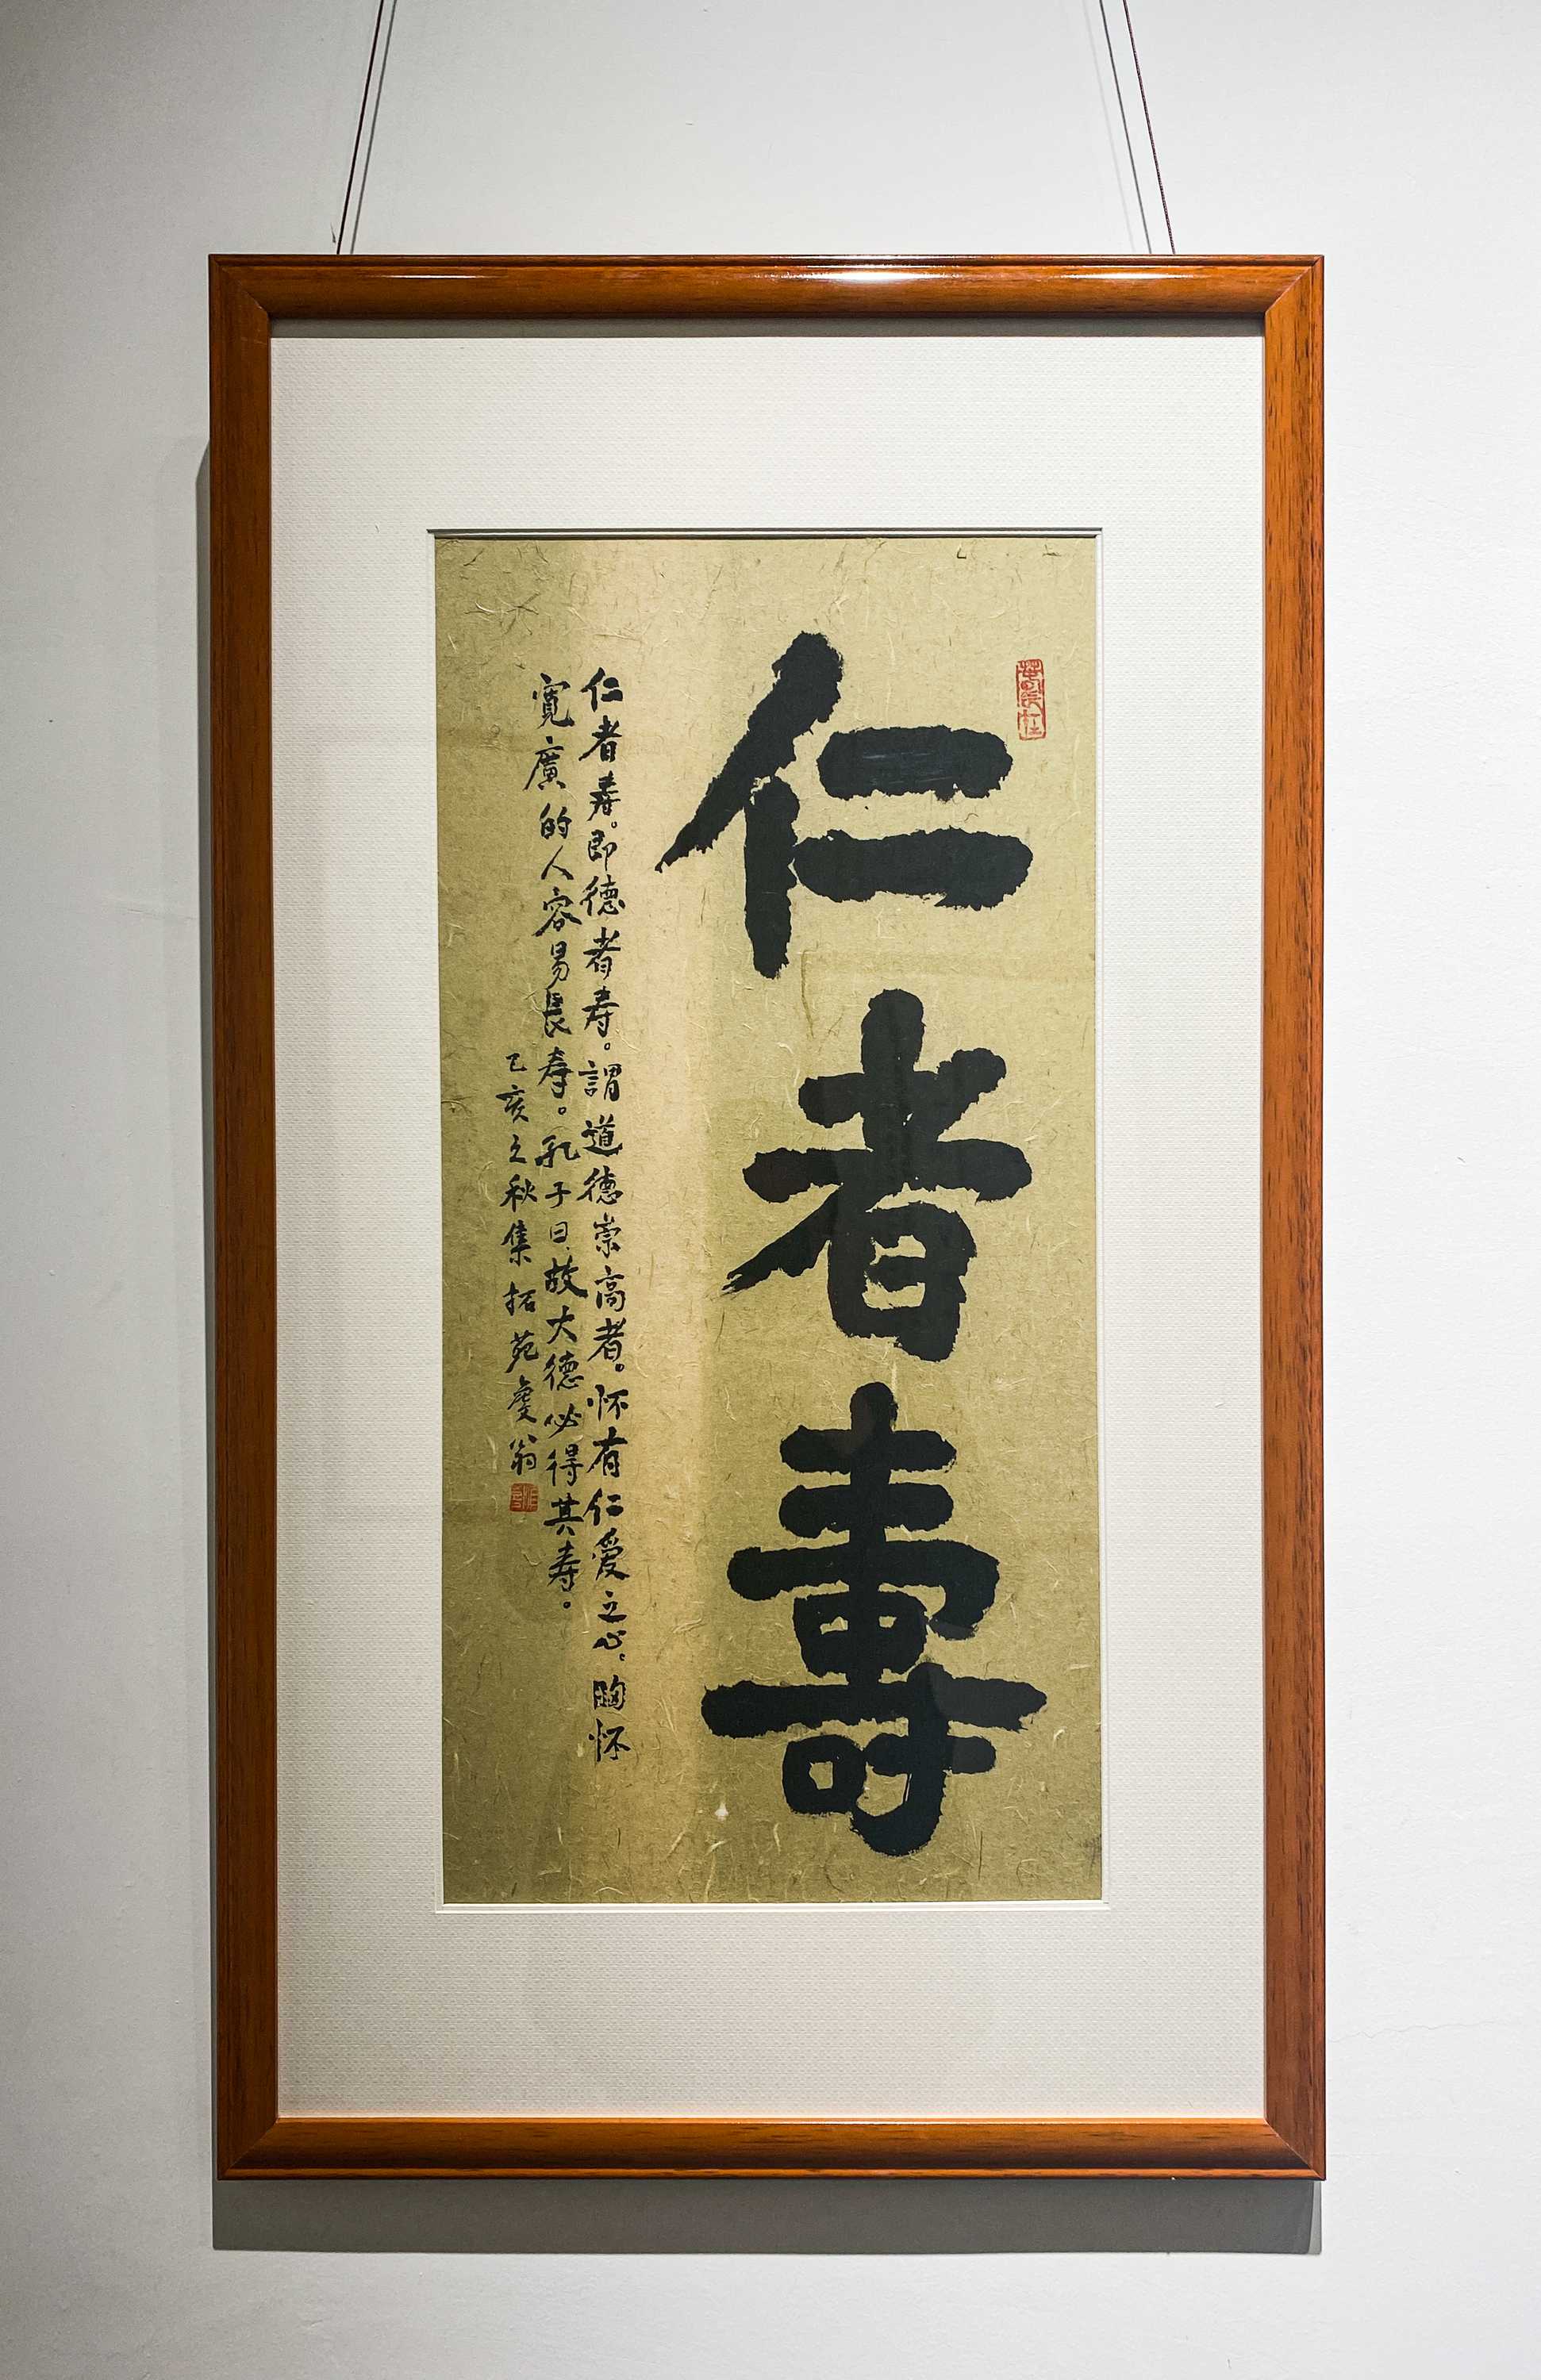 仁者壽
仁者寿。即德者寿。謂道德崇高者。怀有仁爱之心。胸怀
寬廣的人容易長寿。孔子曰。故大德必得其寿。
乙亥之秋集拓苑 翁